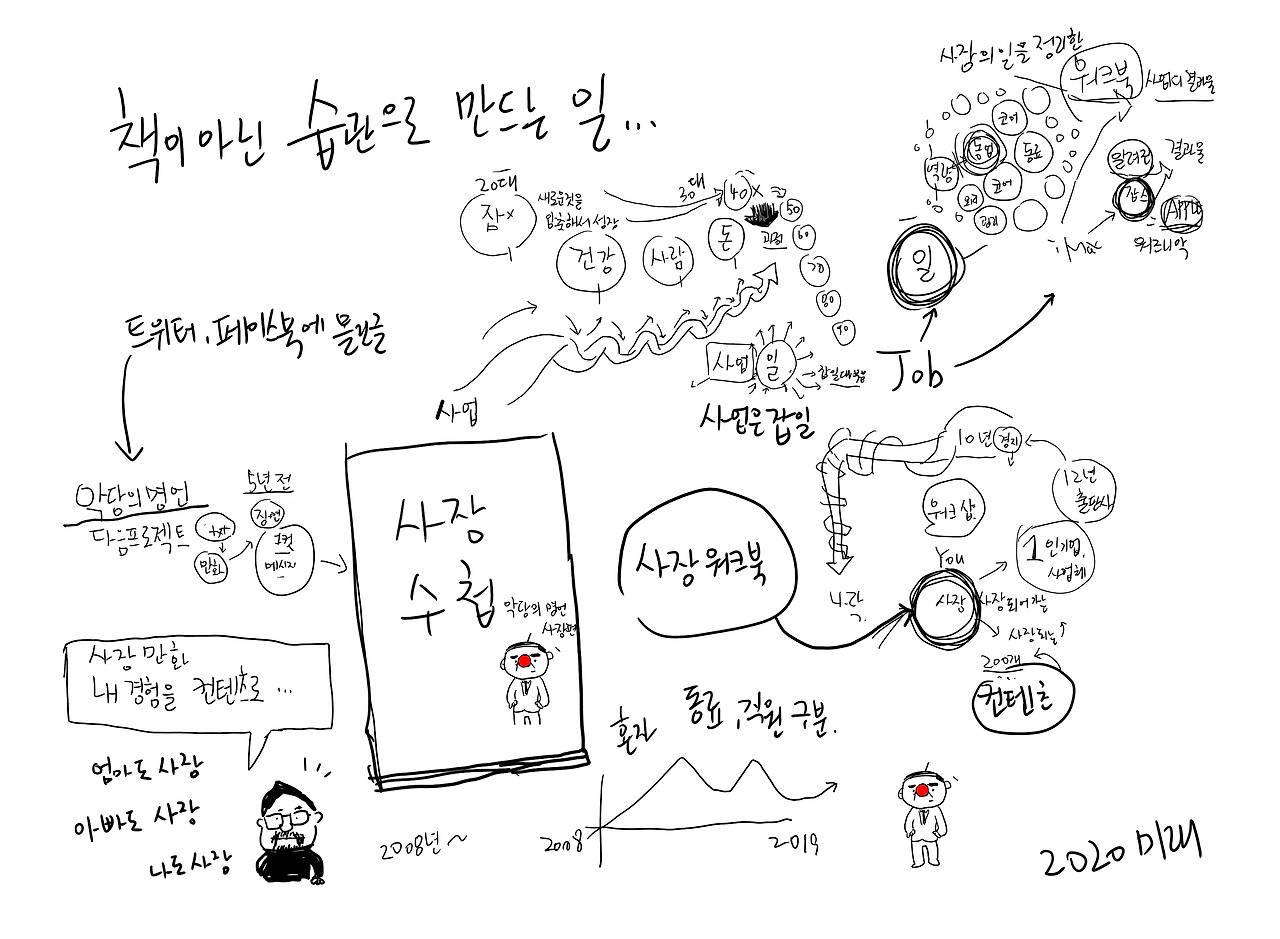 책이 아닌 습관으로 만드는 일...
사장의 일을 정리한
워크북
사업의 결과물
코어
동업
동료
역량
코어
외주
알려진
결과물
잡스
Apple
iMac
워즈니악
일
Job
20대
잡×
새로운것을
30대
40
×
50
60
70
80
90
건강
사람
돈
사업
사업
일
사업은 잡일
트위터, 페이스북에 올린글
악당의 명언
다음프로젝트
txt
만화
5년전
징면
1컷
메시지
사장
수첩
악당의 명언
사장편
사장워크북
10년
경지
12년
출판사
워크샵
1인기업,
사업체
You
사장
사장되어가는
사장되는
200개
컨텐츠
시각
사장 만화
내 경험을 컨텐츠로 ...
엄마도 사장
아빠도 사장
나도 사장
2008년~
혼자
동료, 직원 구분.
2008
2019
2020 미래